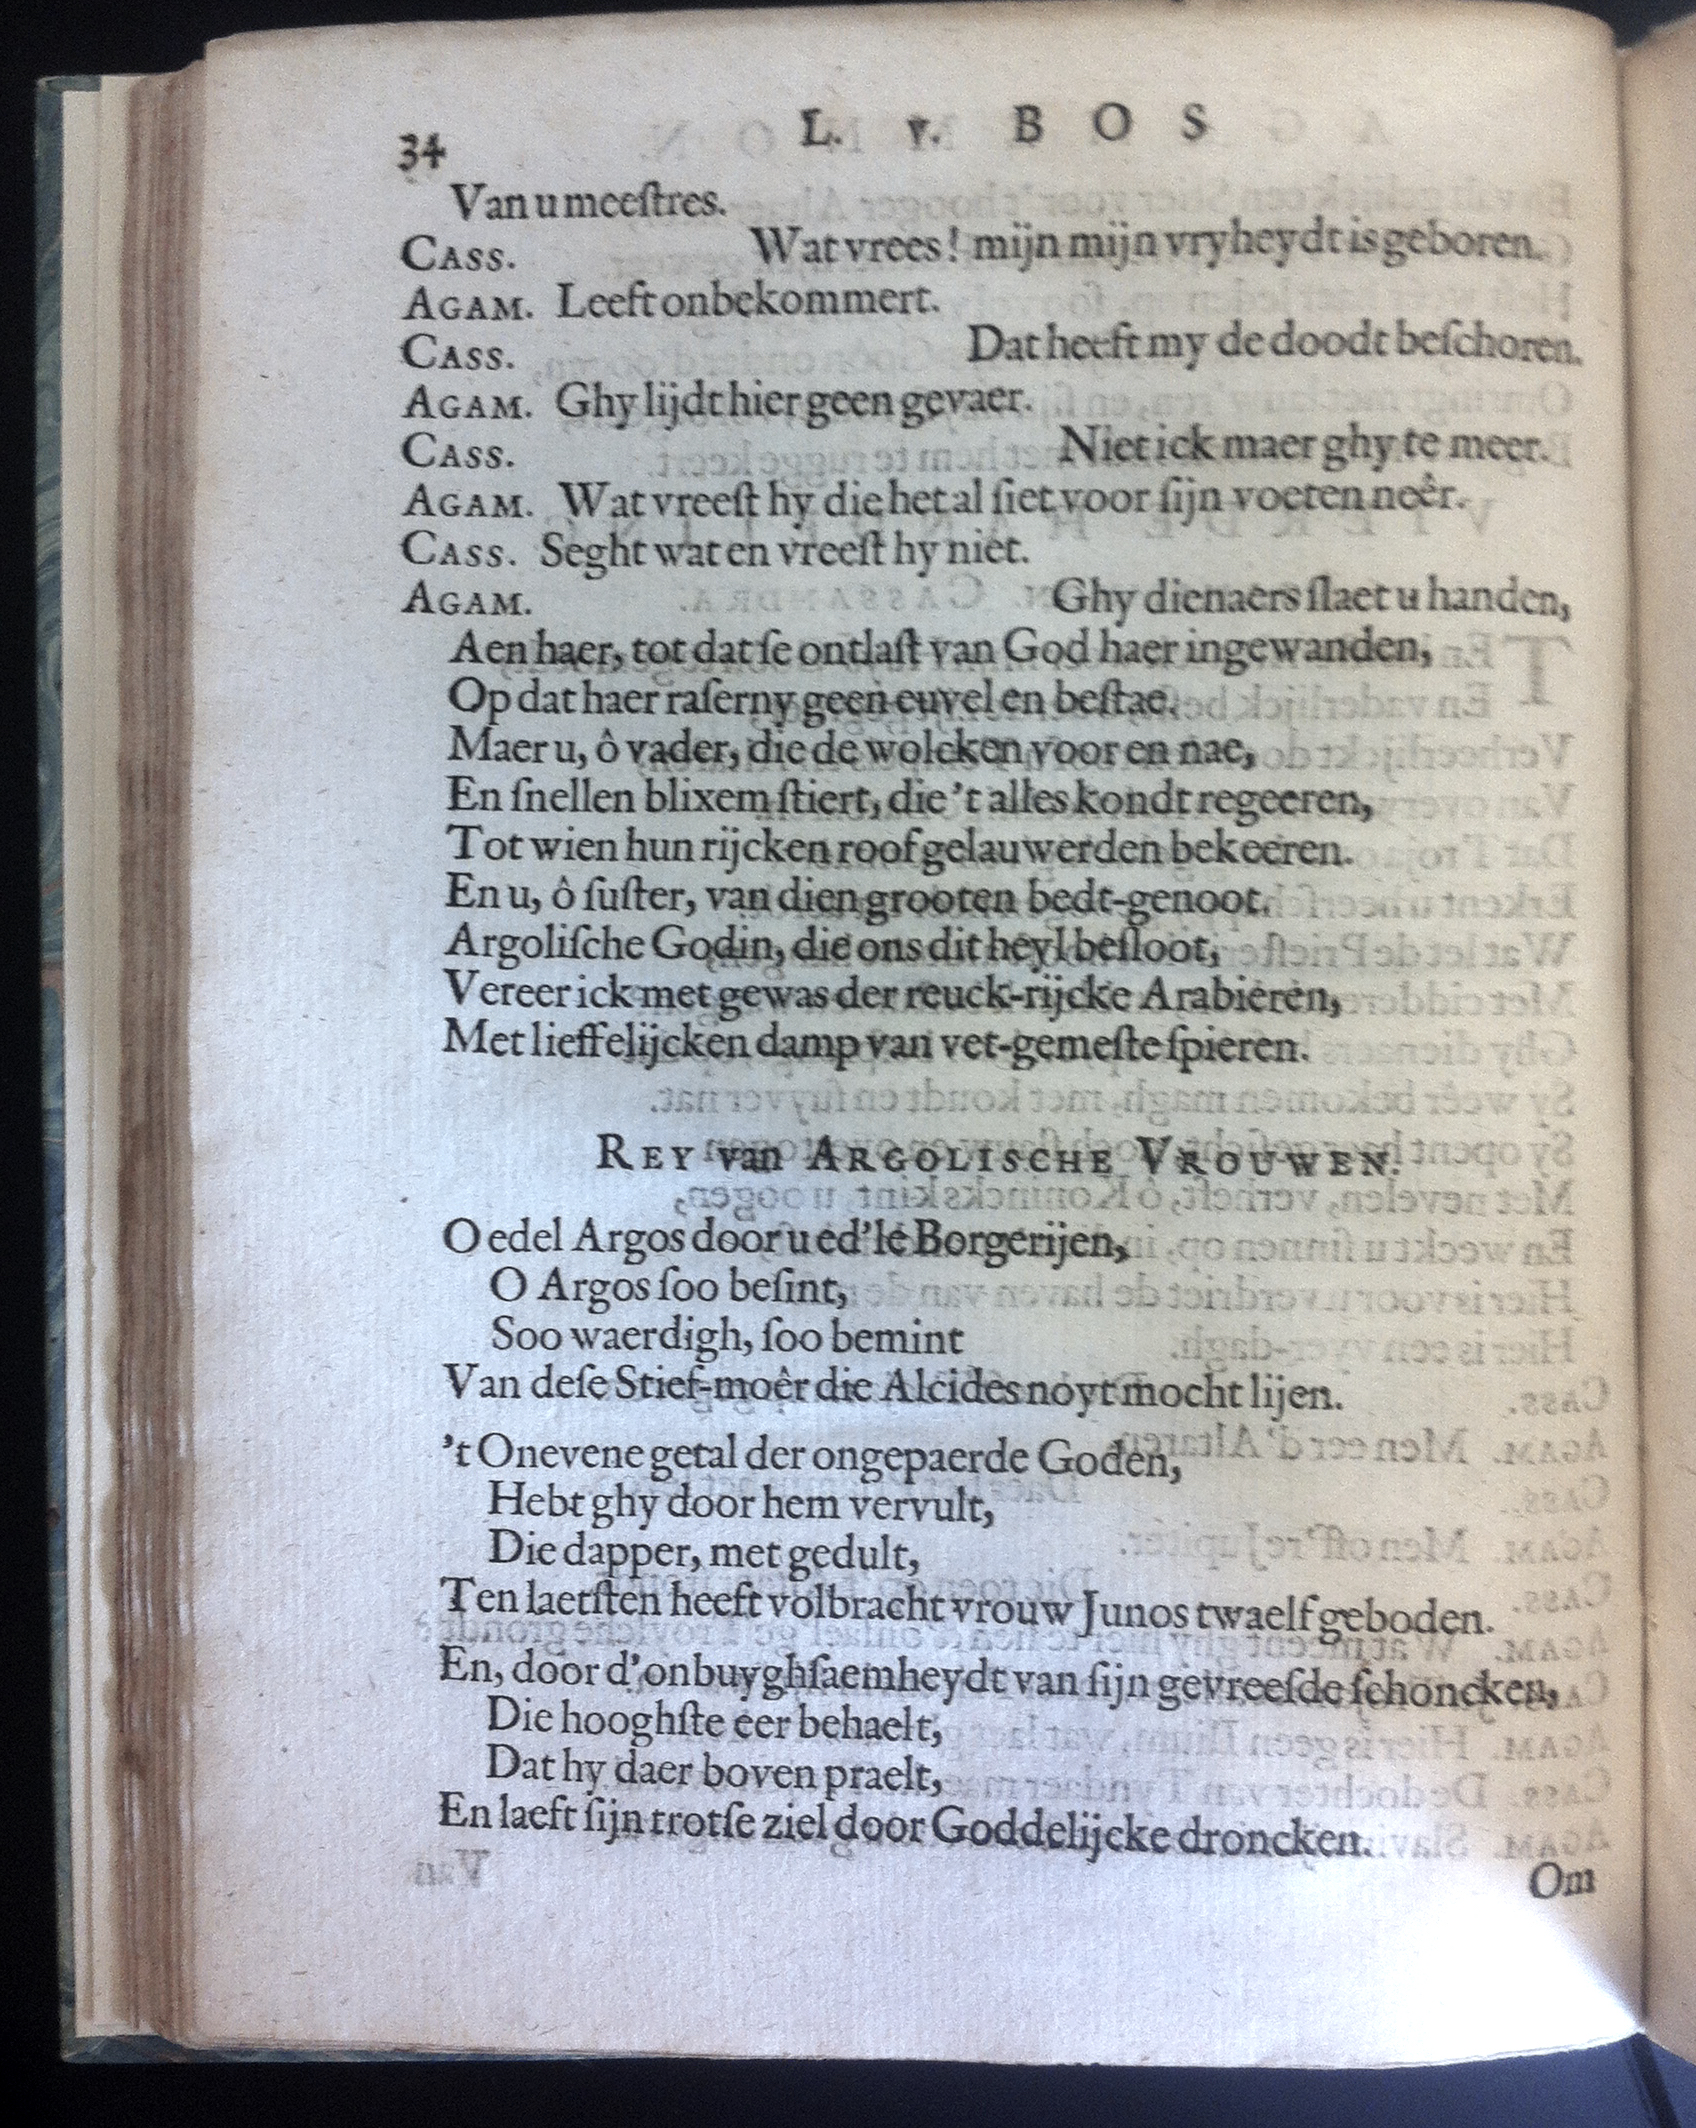 34 L. v. BOS
Van u meeſtres.
CASS. Wat vrees! mijn mijn vryheydt is geboren.
AGAM. Leeft onbekommert.
CASS. Dat heeft my de doodt beſchoren.
AGAM. Ghy lijdt hier geen gevaer.
CASS. Niet ick maer ghy te meer.
AGAM. Wat vreeſt hy die het al ſiet voor ſijn voeten neêr.
CASS. Seght wat en vreeſt hy niet.
AGAM. Ghy dienaers ſlaet u handen,
Aen haer, tot dat ſe ontlaſt van God haer ingewanden,
Op dat haer raſerny geen euvel en beſtae.
Maer u, ô vader, die de wolcken voor en nae,
En ſnellen blixem ſtiert, die 't alles kondt regeeren,
Tot wien hun rijcken roof gelauwerden bekeeren.
En u, ô ſuſter, van dien grooten bedt-genoot.
Argoliſche Godin, die ons dit heyl beſloot,
Vereer ick met gewas der reuck-rijcke Arabieren,
Met lieffelijcken damp van vet-gemeſte ſpieren.
REY van ARGOLISCHE VROUWEN.
O edel Argos door u ed'le Borgerijen,
O Argos ſoo beſint,
Soo waerdigh, ſoo bemint
Van deſe Stief-moêr die Alcides noyt mocht lijen.
't Onevene getal der ongepaerde Goden,
Hebt ghy door hem vervult,
Die dapper, met gedult,
Ten laetſten heeft volbracht vrouw Junos twaelf geboden.
En, door d'onbuyghſaemheydt van ſijn gevreeſde ſchoncken,
Die hooghſte eer behaelt,
Dat hy daer boven praelt,
En laeft ſijn trotſe ziel door Goddelijcke droncken.
Om